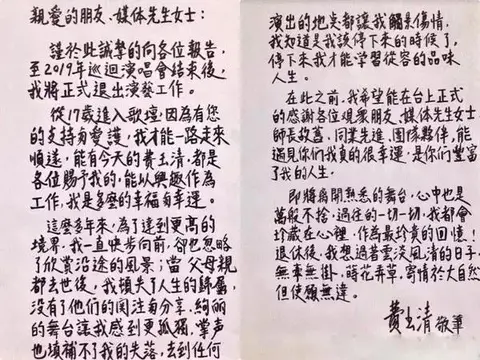 親愛的朋友、媒体先生女士：
謹於此誠摯的向各位報告，
至2019年巡迴演唱會結束後，
我將正式退出演藝工作。
從17歲進入歌壇，因為有您
的支持與愛護，我才能一路走來
順遂，能有今天的費玉清，都是
各位賜予我的，能以興趣作為
工作，我是多麼的幸福與幸運。
這麼多年來，為了達到更高的
境界，我一直快步向前，卻也忽略
了欣賞沿途的風景；當父母親
都去世後，我頓失了人生的歸屬，
沒有了他們的関注與分享，絢麗
的舞台讓我感到更孤獨，掌声
也填補不了我的失落，去到任何
演出的地奌都讓我觸景傷情，
我知道是我該停下來的時候了，
停下來我才能学習從容的品味
人生。
在此之前，我希望能在台上正式
的感謝各位观衆朋友、媒体先生女士
師長故舊、同業先進、團隊夥伴，能
遇見你們我真的很幸運，是你們豐富
了我的人生。
即將離開熟悉的舞台，心中也是
萬般不捨，過往的一切一切，我都會
珍藏在心裡，作為最珍貴的回憶！
退休後，我想過著雲淡風清的日子，
無牽無掛，蒔花弄草，寄情於大自然
但使願無違。
費玉清 敬筆